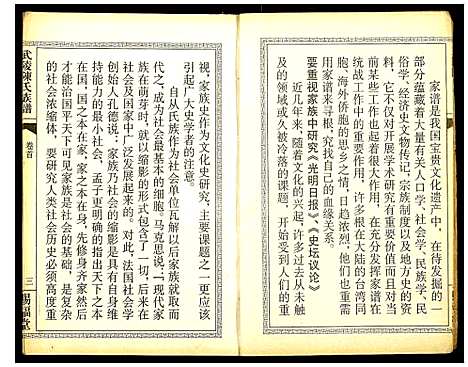 家谱是我国宝贵文化遗产中,在待发掘的一
部分蕴藏着大量有关人口学、社会学、民族学、民
俗学、经济史文物传记、宗族制度以及地方史的资
料,它不仅对开展学术研究有重要价值而且对当
前某些工作也起着很大作用,在充分发挥家谱在
统战工作中的重要作用,许多根在大陆的台湾同
胞,海外侨胞的思乡之情,日趋浓烈,他们也重需
用家谱来寻根、究找自己的血缘关系。
要重视家族中研究《光明日报》、《史坛议论》
近几年来,随着文化的兴起,许多过去从未触
及的领域或久被冷落的课题,开始受到人们的重
视,家族史作为文化史研究,主要课题之一更应该
引起广大史学者的注意。
自从氏族作为社会单位瓦解以后家族就取而
代之,成为社会最基本的细胞。马克思说,"现代家
族在萌芽时,就以缩影的形式包含了一切,后来在
社会及国家中广泛发展起来的。对此,法国社会学
创始人孔德说,家族乃社会的缩影是具有自身维
持能力的最小社会,孟子更明确的指出天下之本
在国,国之本在家,家之本在身,先修身齐家然后
才能治国平天下可见家族是社会的基础,是复杂
社会的缩体,要研究人类社会历史必须高度重
武陵陈氏族谱
卷首
三
赐福堂